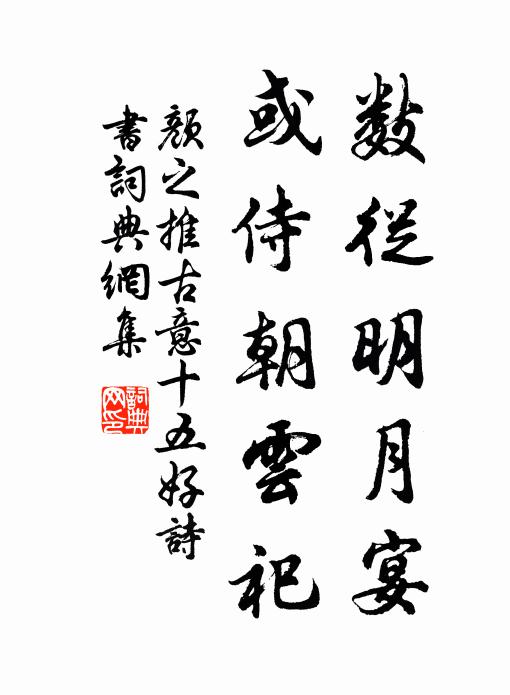 數從明月宴
或侍朝雲祀
顏之推古意十五好詩
書詞典網集
詞典
网印